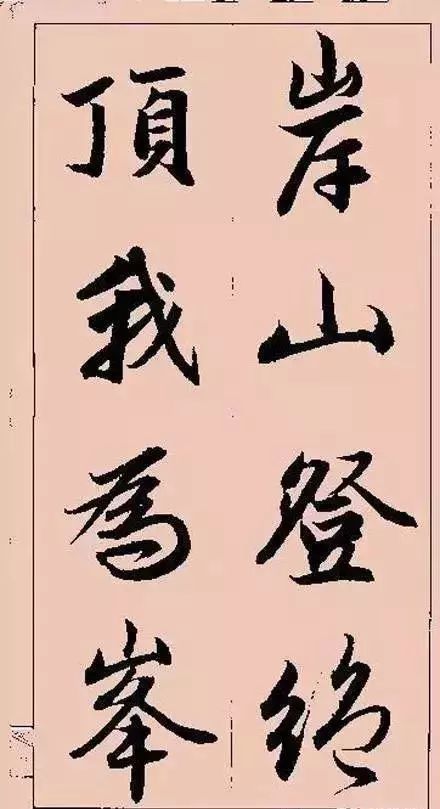 岸山登絕
頂我為峯